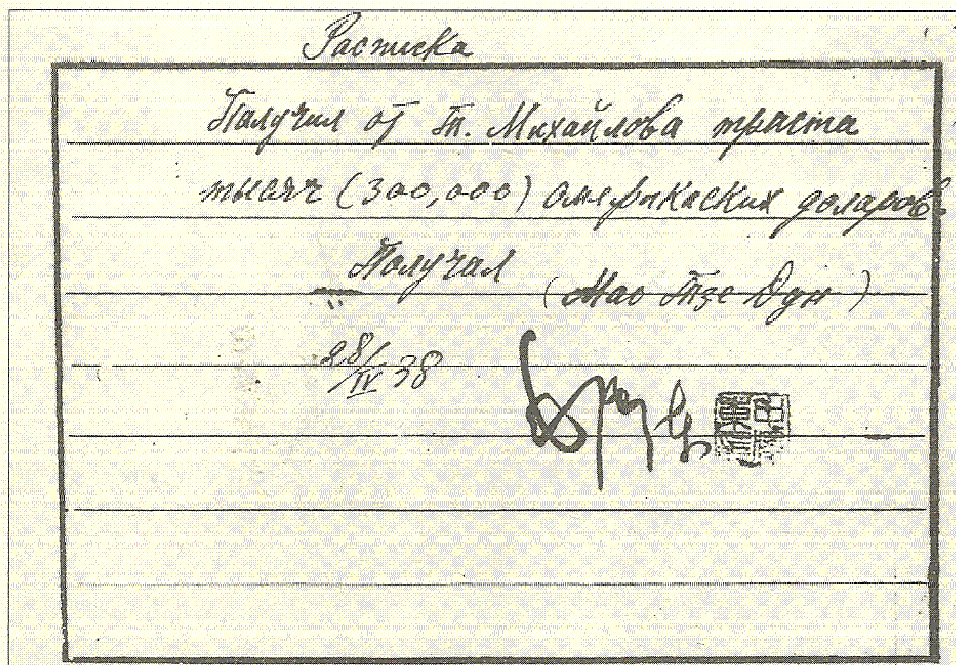 Расписка
Получил от т. Михайлова триста
тысяч (300,000) америкаских доларов.
Получил
(Мао Тзе Дун)
28/IV 38